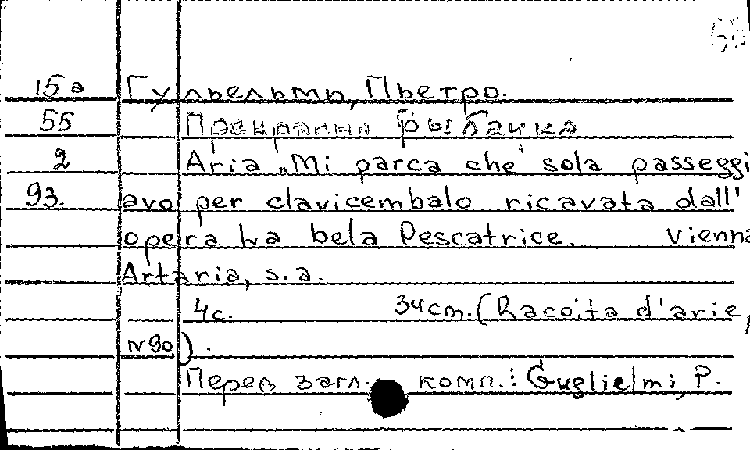 15а Гульельми, Пьетро.
55 Прекрасная рыбачка
2 Aria „Mi parca che sola passeggi
93. avo per clavicembalo ricavata dall'
opera La bela Pescatrice. Vienna
Artaria, s.a.
4с. 34cm. (Racolta d'arie,
N90).
Перед загл. комп.: Guglielmi, P.